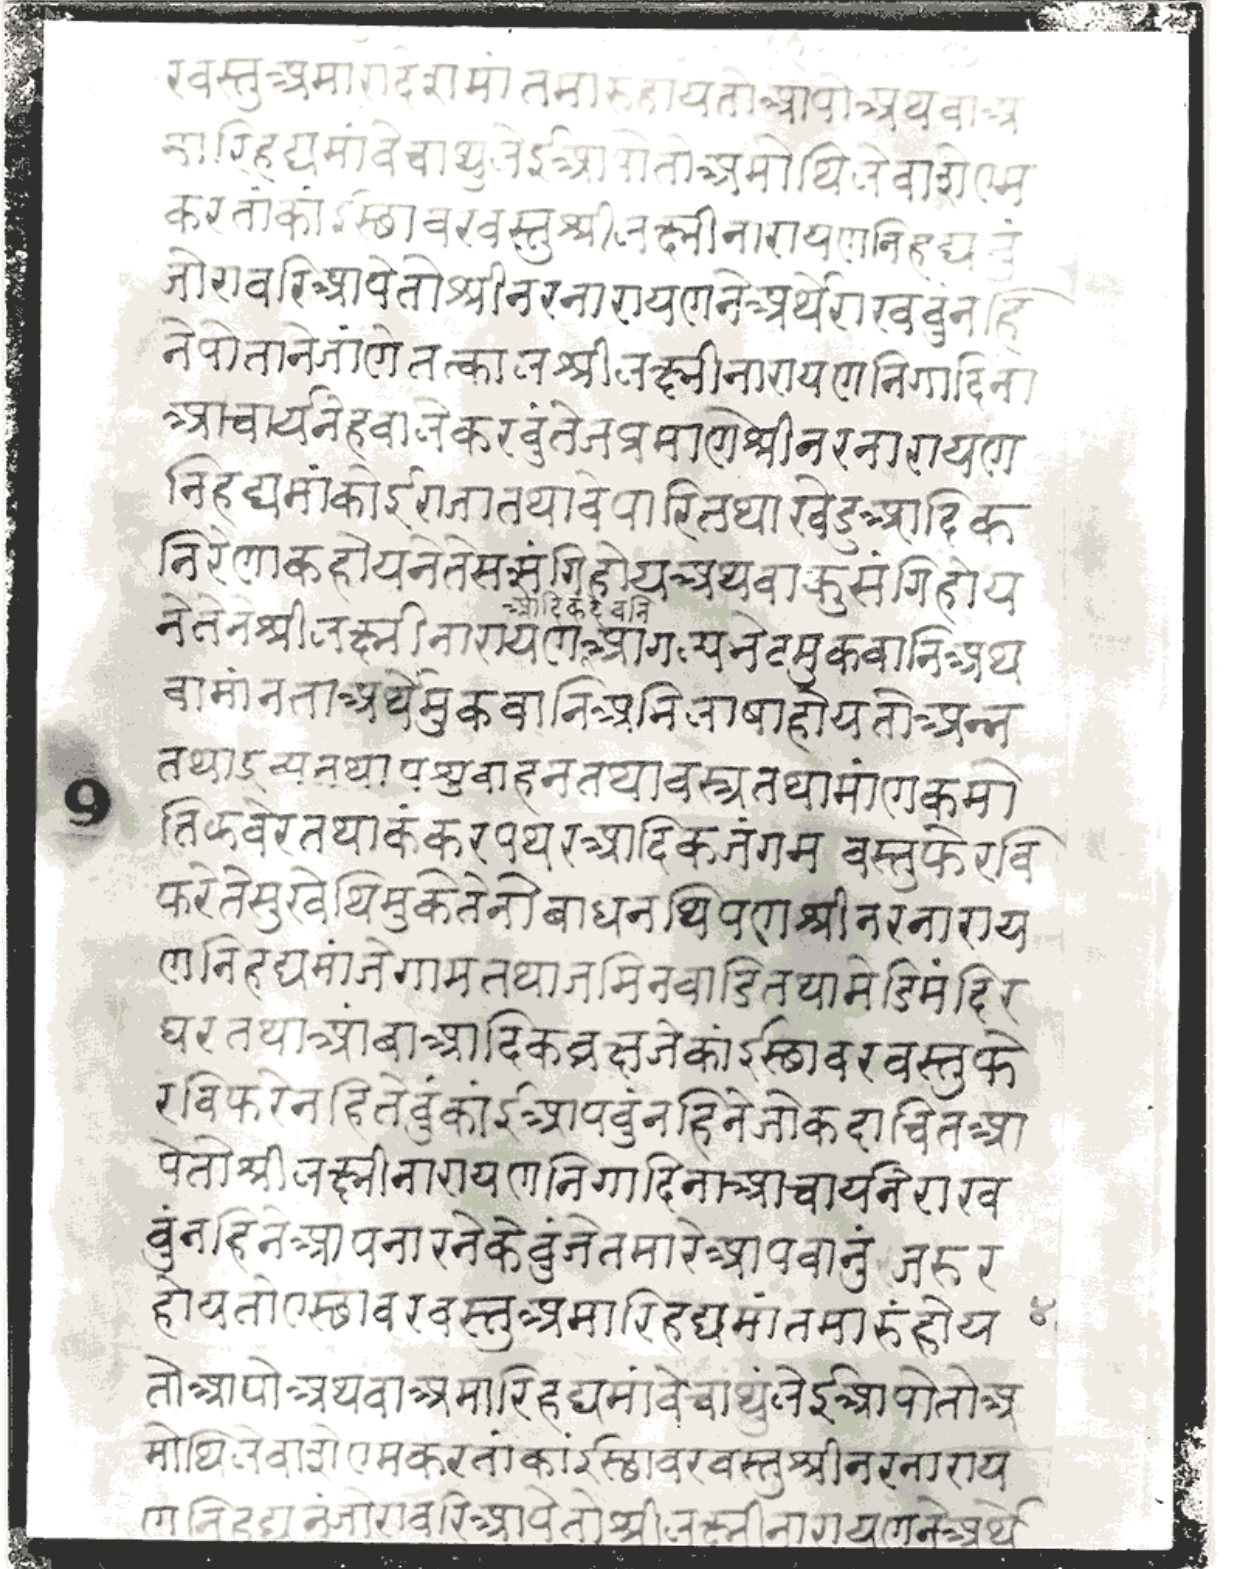 रवस्तु अमारा देशमां तमारु होय तो आपो अथवा अ
मारि हद्यमां वेचाथु लेई आपो तो अमोथि लेवाशे एम
करतां कांई स्छावर वस्तु श्री लक्ष्मीनारायणनि हद्यनुं
जोरावरि आपे तो श्री नरनारायणने अर्थे राखवुं नहि
ने पोताने जांणे तत्काल श्री लक्ष्मीनारायणनि गादिना
आचार्यने हवाले करवुं तेज प्रमाणे श्री नरनारायण
नि हद्यमां कोई राजा तथा वेपारि तथा खेडु आदिक
नि रेणाक होय ने ते सत्संगि होय अथवा कुसंगि होय
आदिक देवनि
ने तेने श्री लक्ष्मीनारायण आगल्य नेट मुकवानि अथ
वा मांनता अर्थे मुकवानि अनिलाषा होय तो अन्न
तथा द्रव्य तथा पशु वाहन तथा वस्त्र तथा मांणक मो
ति झवेर तथा कंकर पथर आदिक जंगम वस्तु फेरवि
फरे ते सुखेथि मुके तेनो बाध नथि पण श्री नरनाराय
णनि हद्यमां जे गाम तथा जमिन वाडि तथा मेडि मंदिर
घर तथा आंबा आदिक व्रक्ष जे कांई स्छावर वस्तु फे
रवि फरे नहि तेवुं कांई आपवुं नहि ने जो कदाचित आ
पे तो श्री लक्ष्मीनारायणनि गादिना आचार्यने राख
वुं नहि ने आपनारने केवुं जे तमारे आपवानुं जरुर
होय तो ए स्छावर वस्तु अमारि हद्यमां तमारुं होय ४
तो आपो अथवा अमारि हद्यमां वेचाथुं लेई आपो तो अ
मोथि लेवाशे एम करतां कांई स्छावर वस्तु श्री नरनाराय
णनि हद्यनुं जोरावरि आपे तो श्री लक्ष्मीनारायणने अर्थे
9